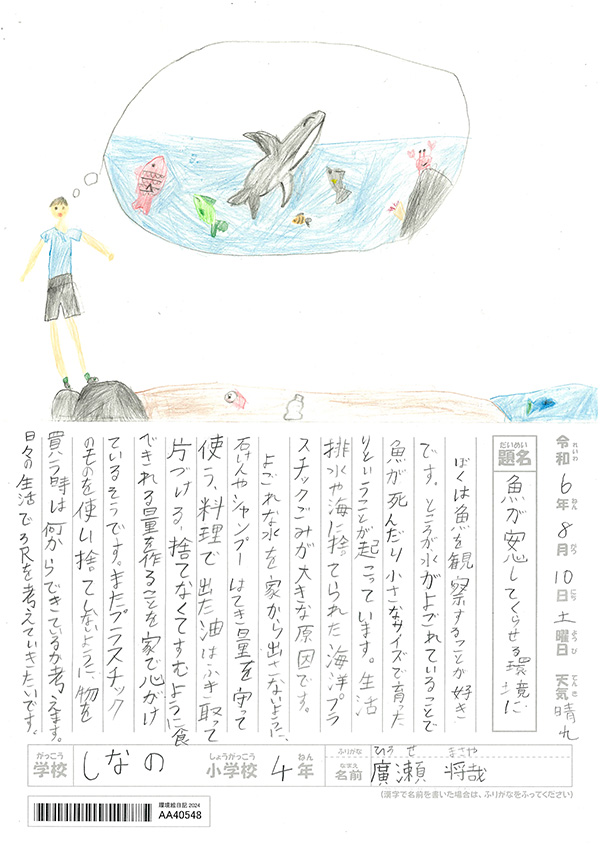 令和6年8月10日土曜日 天気 晴れ
れいわ ねん がつ にち ようび てんき
だいめい
題名 魚が安心してくらせる環境に
ぼくは魚を観察することが好き
です。ところが水がよごれていることで
魚が死んだり小さなサイズで育った
りということが起こっています。生活
排水や海に捨てられた海洋プラ
スチックごみが大きな原因です。
よごれな水を家から出さないように、
石けんやシャンプーはてき量を守って
使う、料理で出た油はふき取って
片づける、捨てなくてすむように食
できれる量を作ることを家で心がけ
ているそうです。またプラスチック
のものを使い捨てしないように、物を
買う時は何からできているか考えます。
日々の生活で3Rを考えていきたいです。
がっこう しょうがっこう ねん
学校 しなの 小学校 4年
ふりがな ひろせ まさや
なまえ
名前 廣瀬 将哉
(漢字で名前を書いた場合は、ふりがなをふってください)
環境絵日記 2024
AA40548